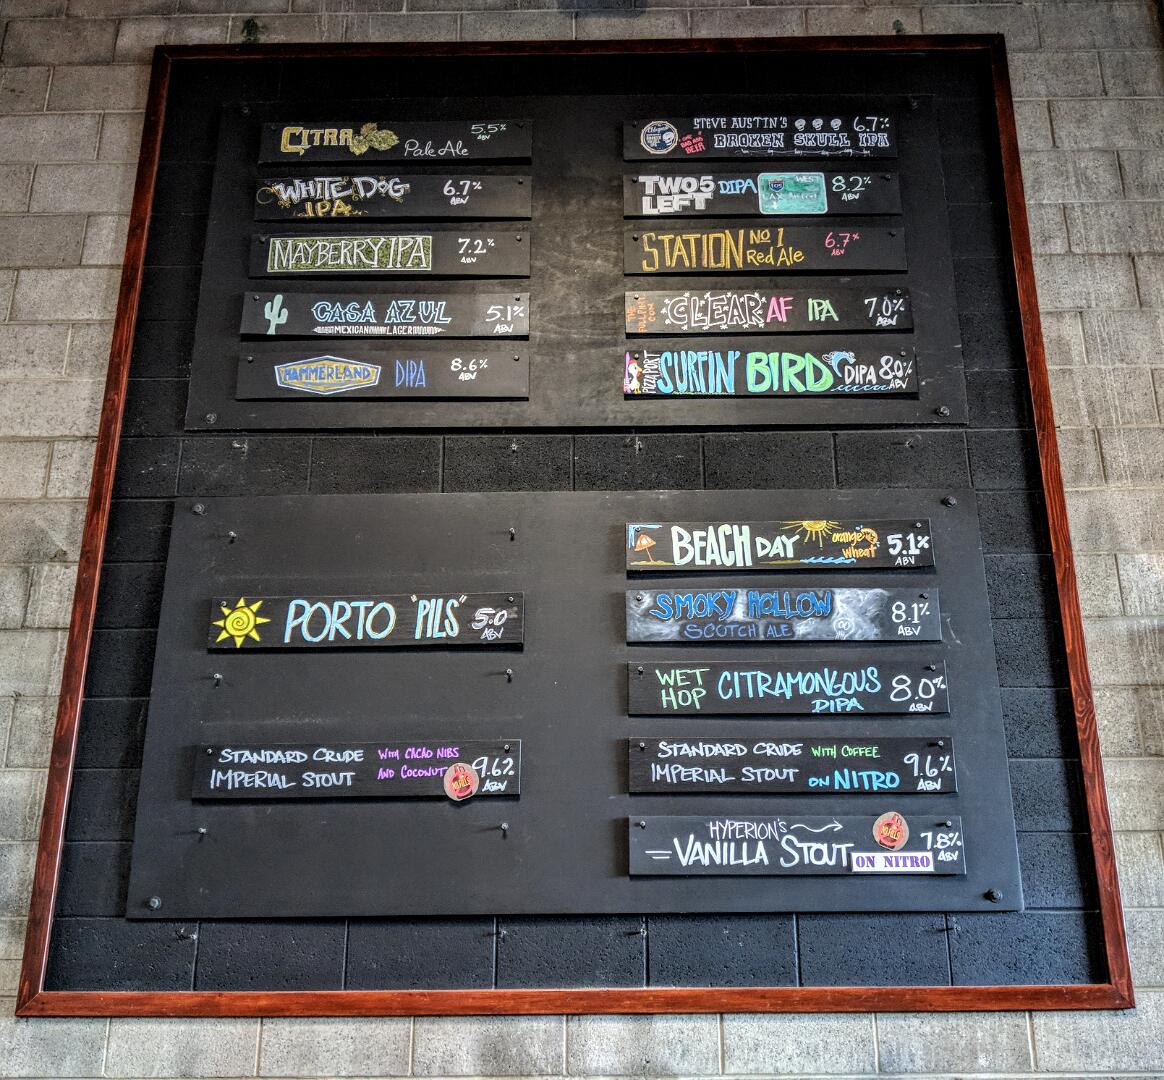 CITRA
Pale Ale
5.5%
ABV
WHITE DOG
IPA
6.7%
ABV
MAYBERRY IPA
7.2%
ABV
CASA AZUL
MEXICAN LAGER
5.1%
ABV
HAMMERLAND
DIPA
8.6%
ABV
STEVE AUSTIN'S
BROKEN SKULL IPA
6.7%
TWO5
LEFT
DIPA
WEST
105
8.2%
ABV
STATION No 1
Red Ale
6.7%
ABV
CLEAR AF IPA
7.0%
ABV
PIZZA PORT
SURFIN' BIRD
DIPA
8.0%
ABV
PORTO "PILS"
5.0
ABV
STANDARD CRUDE
IMPERIAL STOUT
WITH CACAO NIBS
AND COCONUT
9.6%
ABV
BEACH DAY
orange
wheat
5.1%
ABV
SMOKY HOLLOW
SCOTCH ALE
8.1%
ABV
WET
HOP
CITRAMONGOUS
DIPA
8.0%
ABV
STANDARD CRUDE WITH COFFEE
IMPERIAL STOUT ON NITRO
9.6%
ABV
HYPERION'S
VANILLA STOUT
ON NITRO
7.8%
ABV